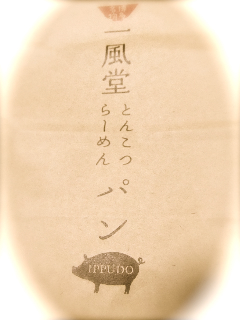 一風堂
とんこつ
らーめん
パン
IPPUDO